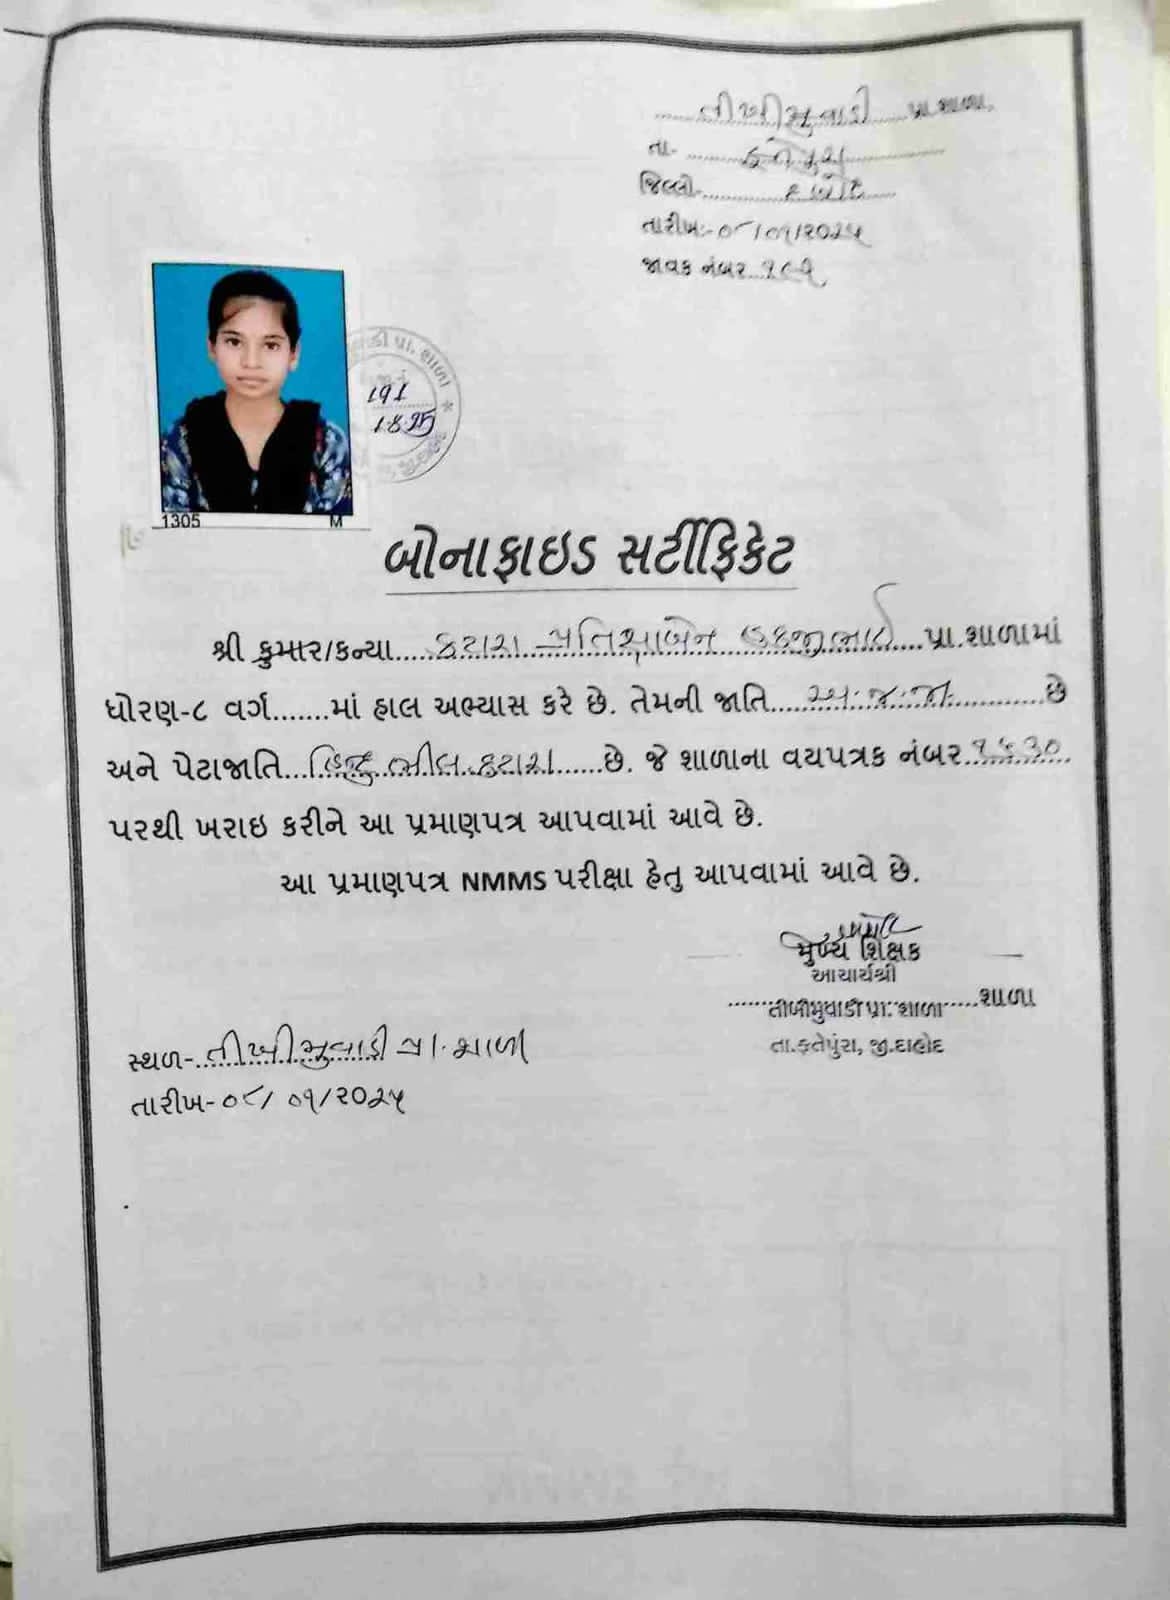 તીખીમુવાડી પ્રા.શાળા.
તા- ફતેપુરા
જિલ્લો- દાહોદ
તારીખ:-૦૮/૦૧/૨૦૨૫
જાવક નંબર ૧૯૧
પ્રા. શાળા *
191
1.8.25
1305 M
બોનાફાઇડ સર્ટીફિકેટ
શ્રી કુમાર/કન્યા કટારા પ્રતિક્ષાબેન પ્રા.શાળામાં
ધોરણ-૮ વર્ગ.......માં હાલ અભ્યાસ કરે છે. તેમની જાતિ અ.જ.જા. છે
અને પેટાજાતિ હિન્દુ ભીલ કટારા છે. જે શાળાના વયપત્રક નંબર ૧૫૩૦
પરથી ખરાઇ કરીને આ પ્રમાણપત્ર આપવામાં આવે છે.
આ પ્રમાણપત્ર NMMS પરીક્ષા હેતુ આપવામાં આવે છે.
મુખ્ય શિક્ષક
આચાર્યશ્રી
તીખીમુવાડી પ્રા. શાળા શાળા
તા.ફતેપુરા, જી.દાહોદ
સ્થળ- તીખીમુવાડી પ્રા.શાળા
તારીખ-૦૮/૦૧/૨૦૨૫